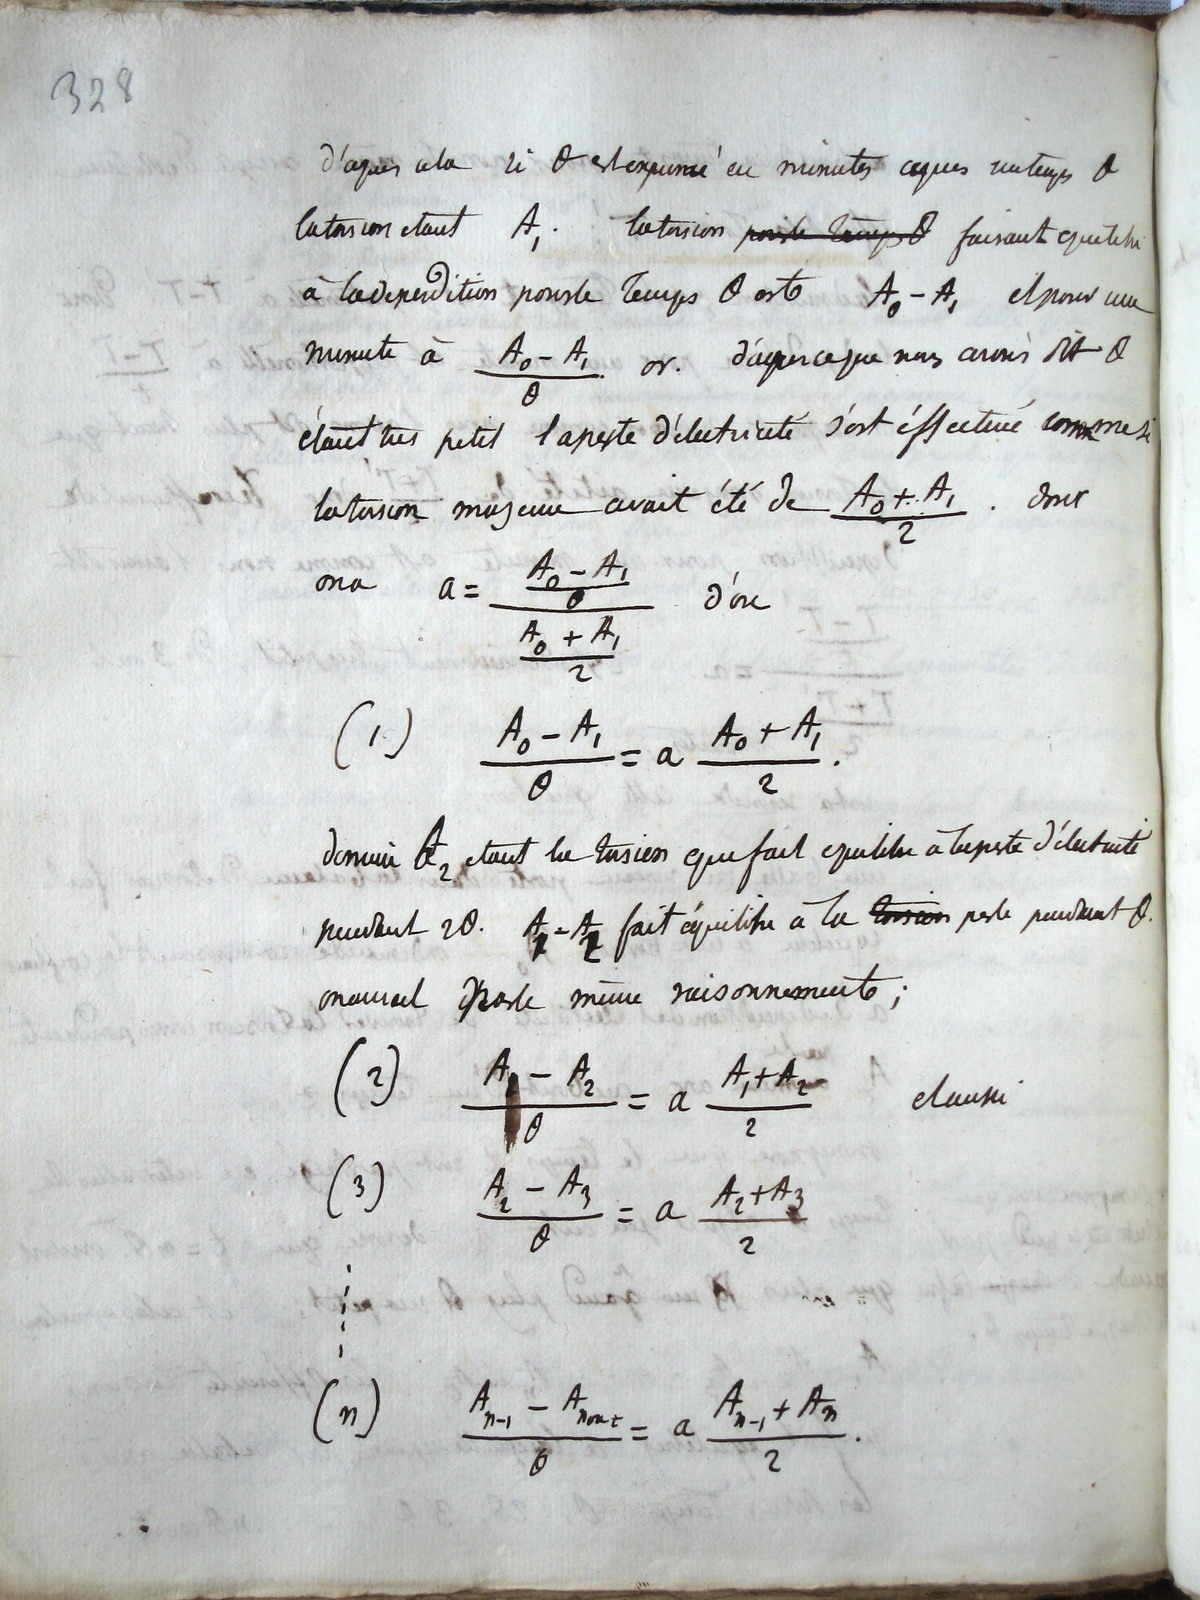 328
d'apres cela si θ est exprimé en minutes apres un temps θ
la torsion etant A₁. la torsion pour le temps θ faisant equilibre
à la deperdition pour le temps θ est A₀ - A₁ et pour une
minute à (A₀ - A₁)/θ. or. d'apres ce que nous avons dit θ
étant très petit la perte d'électricité s'est éffectuée comme si
la torsion moyenne avait été de (A₀ + A₁)/2. donc
on a a = ((A₀ - A₁)/θ)/((A₀ + A₁)/2) d'ou
(1) (A₀ - A₁)/θ = a (A₀ + A₁)/2.
de même A₂ etant la torsion que fait equilibre a la perte d'électricité
pendant 2θ. A₁ - A₂ fait équilibre a la torsion perte pendant θ.
on aurait par le même raisonnement;
(2) (A₁ - A₂)/θ = a (A₁ + A₂)/2 et aussi
(3) (A₂ - A₃)/θ = a (A₂ + A₃)/2
(n) (Aₙ₋₁ - A)/θ = a (Aₙ₋₁ + Aₙ)/2.